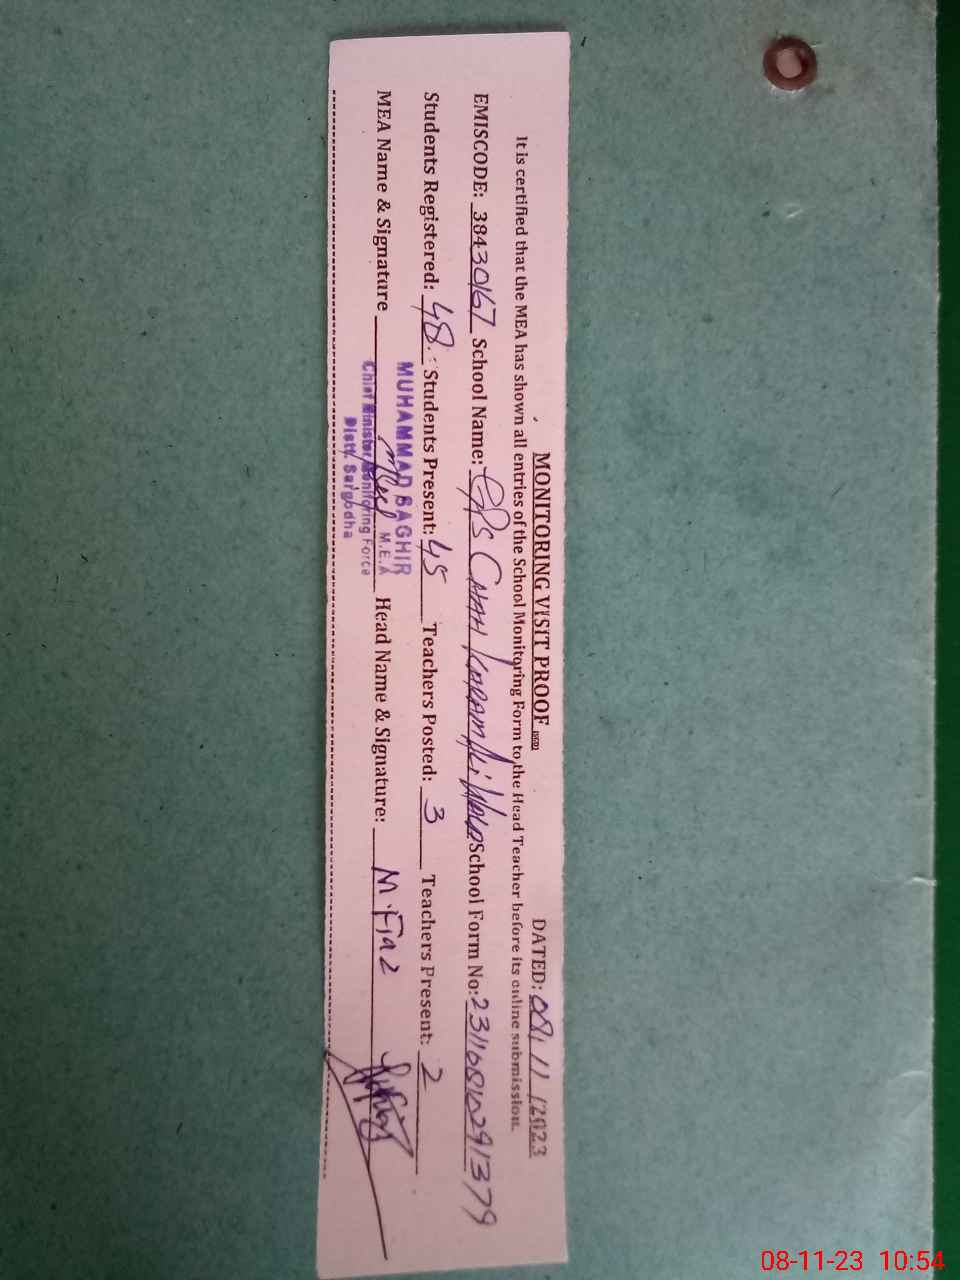 MONITORING VISIT PROOF DATED: 08/11/2023
It is certified that the MEA has shown all entries of the School Monitoring Form to the Head Teacher before its online submission.
EMISCODE: 38430167 School Name: GPS Chah Karam Ali Wala School Form No: 
Students Registered: 48 Students Present: 45 Teachers Posted: 3 Teachers Present: 2
MUHAMMAD SAGHIR
MEA Name & Signature M.E.A Head Name & Signature: M. Ejaz
Chief Minister Monitoring Force
Distt. Sargodha
08-11-23 10:54